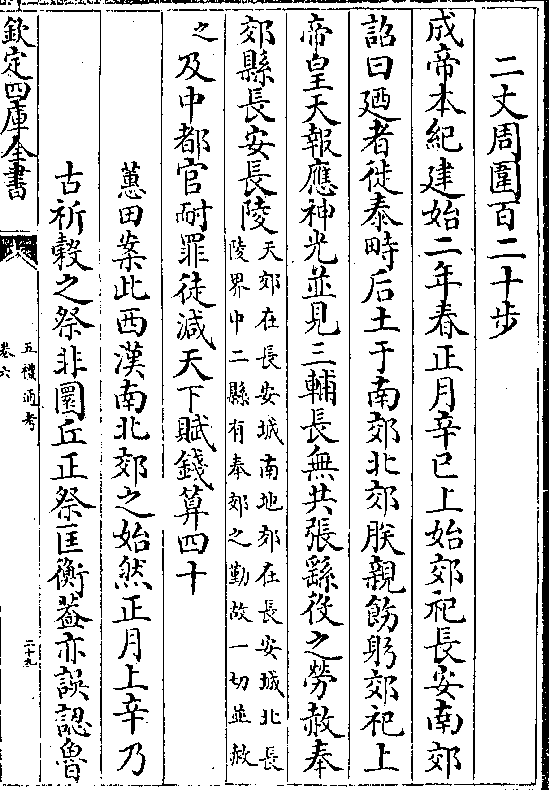 二丈周圍百二十步
成帝本紀建始二年春正月辛巳上始郊祀長安南郊
詔曰廼者徙泰畤后土于南郊北郊朕親飭躬郊祀上
帝皇天報應神光並見三輔長無共張繇役之勞赦奉
郊縣長安長陵天郊在長安城南地郊在長安城北長
陵界中二縣有奉郊之勤故一切並赦
之及中都官耐罪徒減天下賦錢算四十
蕙田案此西漢南北郊之始然正月上辛乃
古祈穀之祭非圜丘正祭匡衡葢亦誤認魯
欽定四庫全書
五禮通考
卷六
二十九